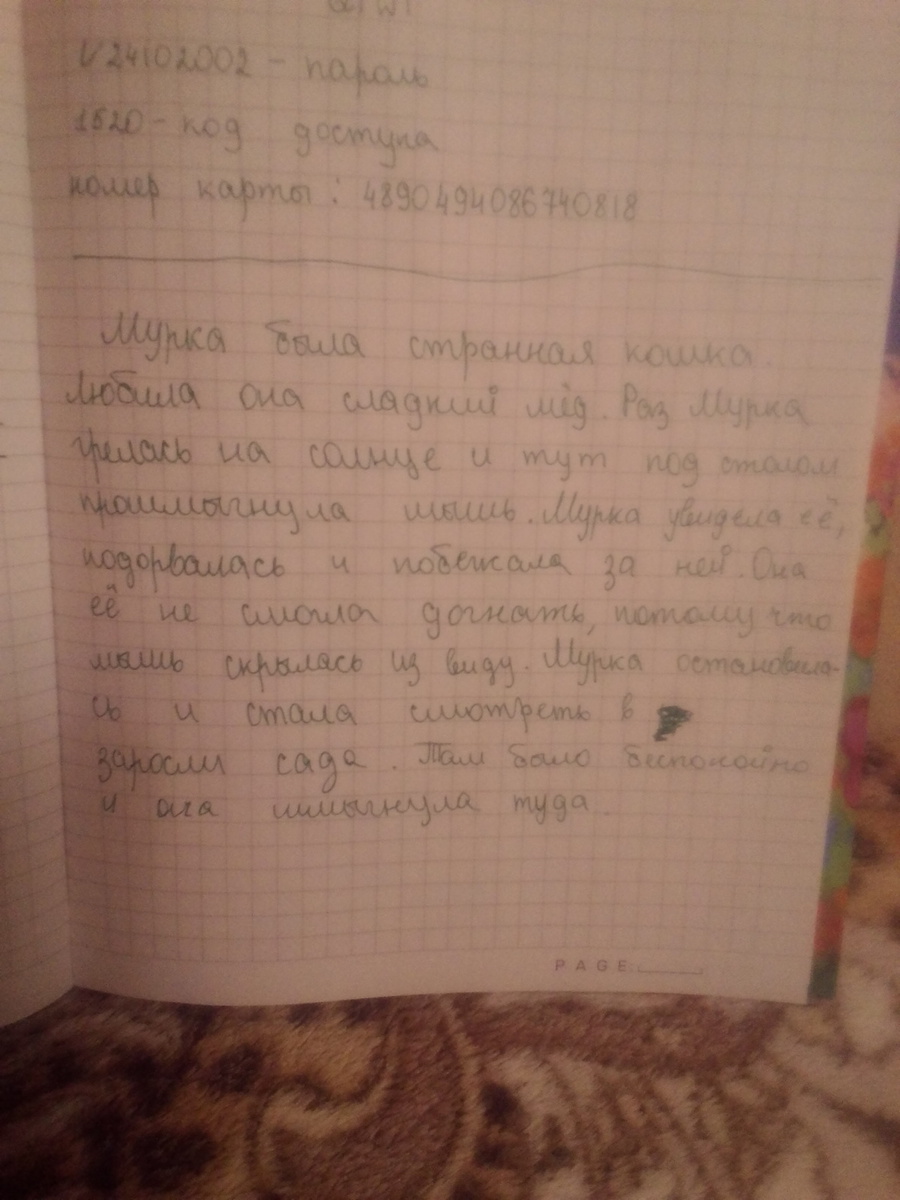 V24102002 - пароль
1520 - код доступа
номер карты: 4890494086740818
Мурка была странная кошка.
Любила она сладкий мёд. Раз Мурка
грелась на солнце и тут под столом
прошмыгнула мышь. Мурка увидела её,
подорвалась и побежала за ней. Она
её не смогла догнать, потому что
мышь скрылась из виду. Мурка остановила-
сь и стала смотреть в
заросли сада. Там было беспокойно
и она шмыгнула туда.
PAGE: